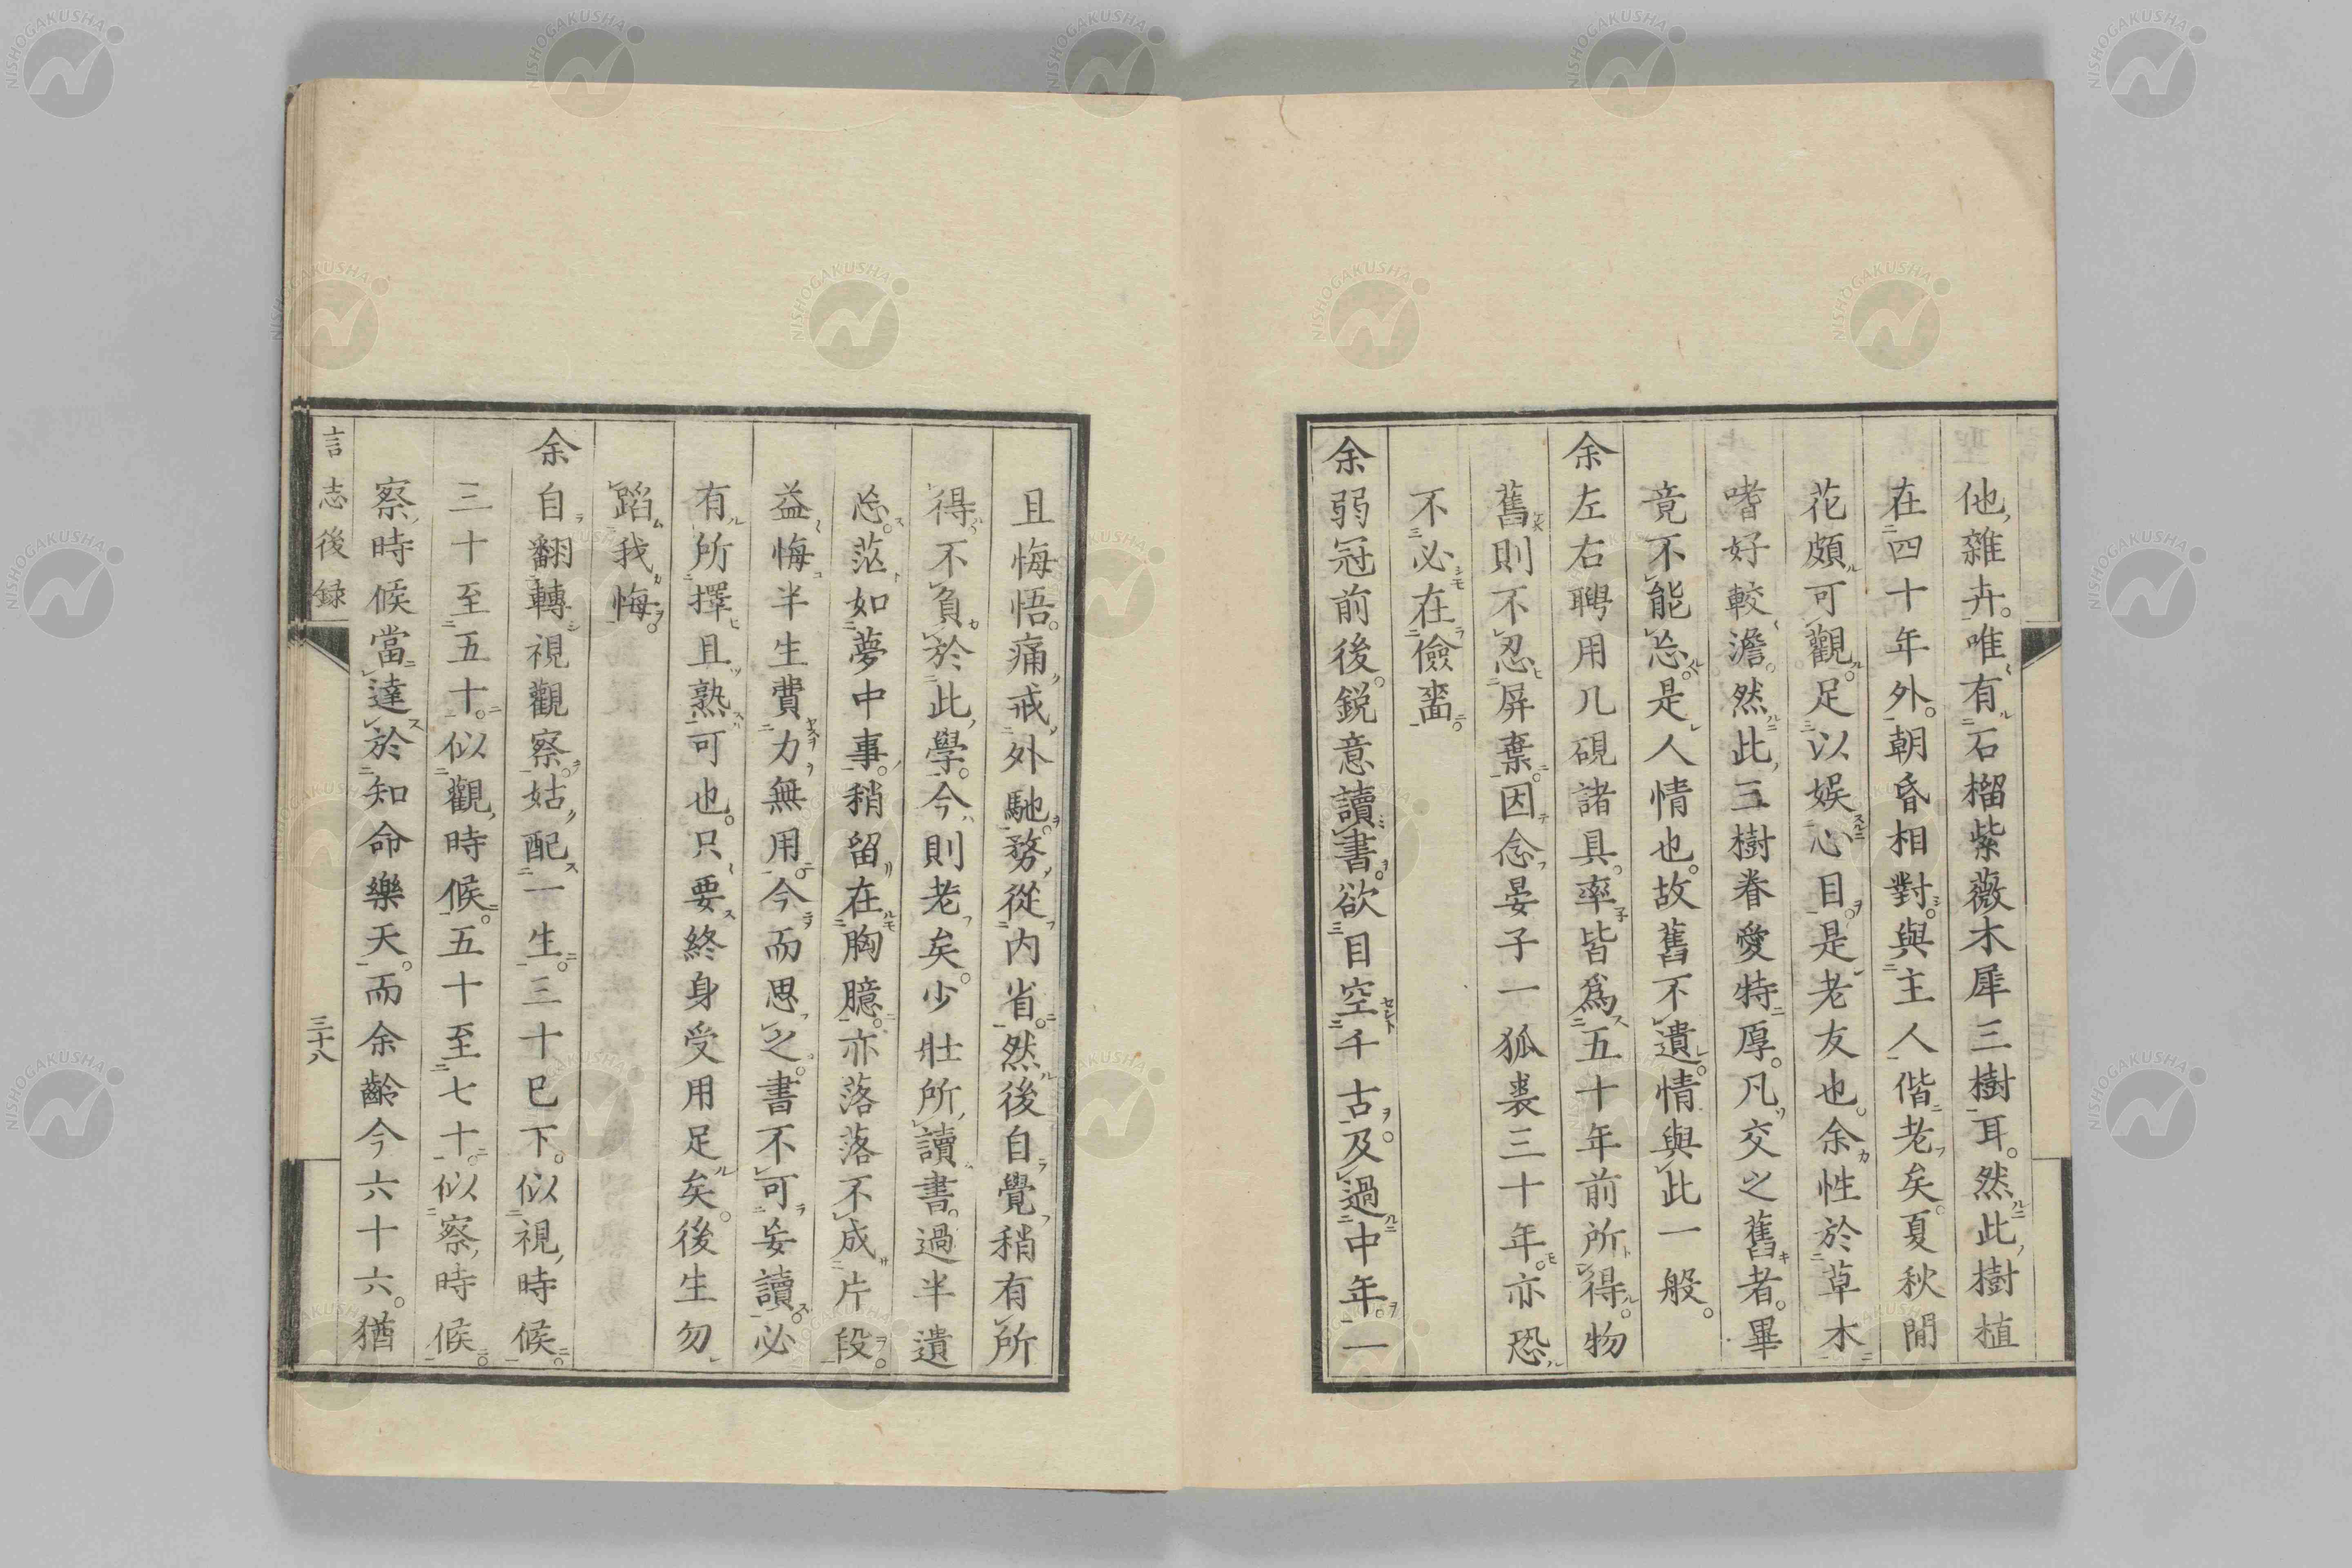 他雜卉。唯有石榴紫薇木犀三樹耳。然此樹植
在四十年外。朝昏相對。與主人偕老矣。夏秋閒
花頗可觀。足以娛心目。是老友也。余性於草木
嗜好較澹。然此三樹眷愛特厚。凡交之舊者。畢
竟不能忘。是人情也。故舊不遺。情與此一般。
余左右聘用几硯諸具。率皆爲五十年前所得。物
舊則不忍屏棄。因念晏子一狐裘三十年。亦恐
不必在儉嗇。
余弱冠前後。鋭意讀書。欲目空千古。及過中年。一
且悔悟。痛戒外馳。務從内省。然後自覺稍有所
得。不負於此學。今則老矣。少壯所讀書。過半遺
忘。茫如夢中事。稍留在胸臆。亦落落不成片段。
益悔半生費力無用。今而思之。書不可妄讀。必
有所擇且熟可也。只要終身受用足矣。後生勿
蹈我悔。
余自翻轉視觀察。姑配一生。三十已下。似視時候。
三十至五十。似觀時候。五十至七十。似察時候。
察時候當達於知命樂天。而余齡今六十六。猶
言志後録
三十八
NISHOGAKUSHA